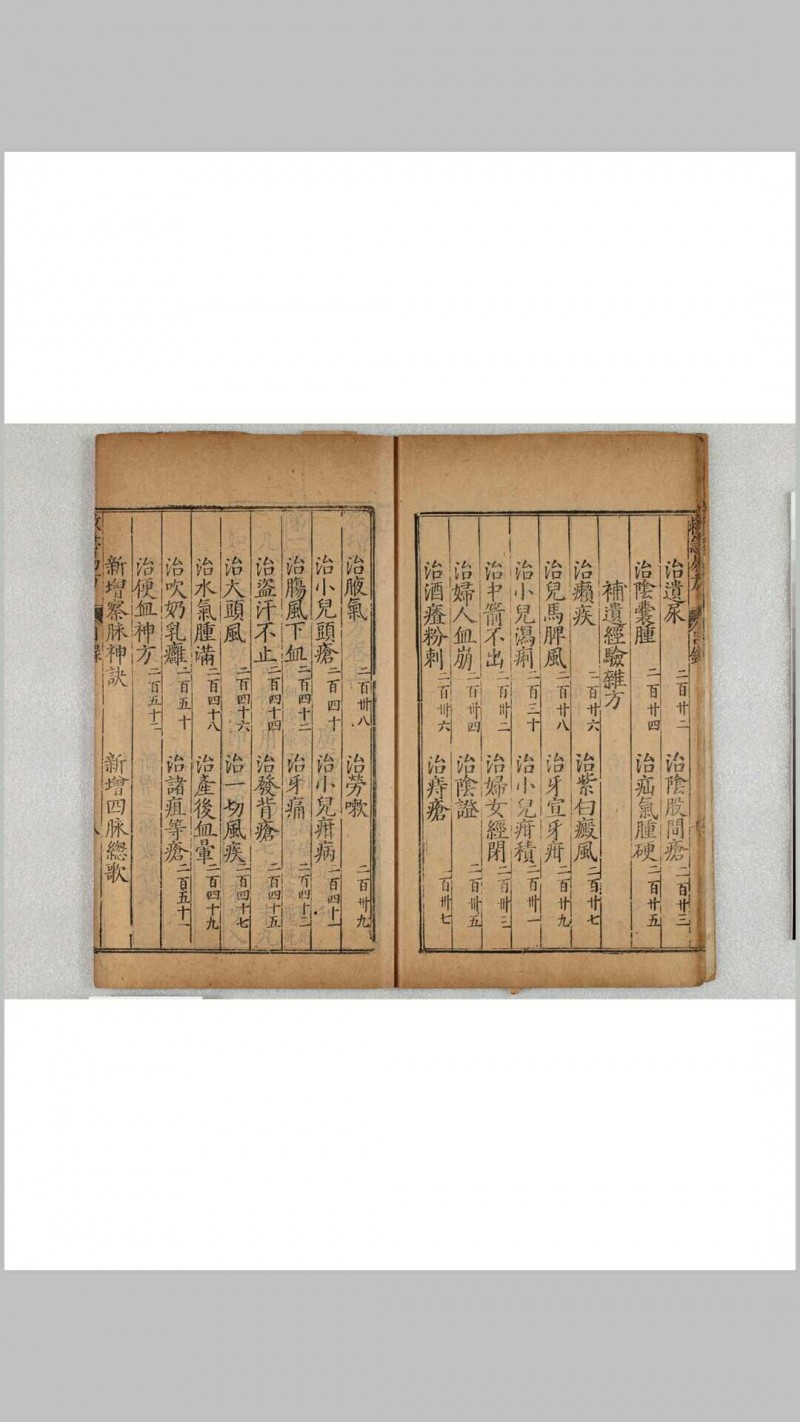 治遺尿 二百廿二 治陰股間瘡 二百廿三
治陰囊腫 二百廿四 治疝氣腫硬 二百廿五
補遺經驗雜方
治癩疾 二百廿六 治紫白癜風 二百廿七
治兒馬脾風 二百廿八 治牙宣牙疳 二百廿九
治小兒瀉痢 二百三十 治小兒疳積 二百卅一
治中箭不出 二百卅二 治婦女經閉 二百卅三
治婦人血崩 二百卅四 治陰證 二百卅五
治酒瘡粉刺 二百卅六 治痔瘡 二百卅七
治腋氣 二百卅八 治勞嗽 二百卅九
治小兒頭瘡 二百四十 治小兒疳病 二百四十一
治腸風下血 二百四十二 治牙痛 二百四十三
治盜汗不止 二百四十四 治發背瘡 二百四十五
治大頭風 二百四十六 治一切風疾 二百四十七
治水氣腫滿 二百四十八 治產後血暈 二百四十九
治吹奶乳癰 二百五十 治諸疽等瘡 二百五十一
治便血神方 二百五十二
新增察脉神訣 新增四脉總歌